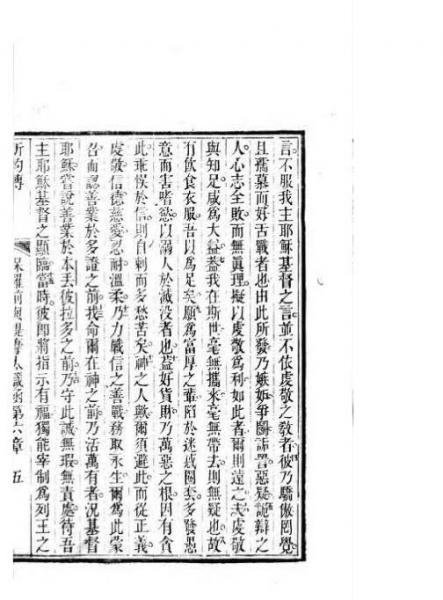 言不服我主耶穌基督之言並不依虔敬之教者彼乃驕傲罔覺
且孺慕而好舌戰者也由此所發乃嫉妒爭鬭詬詈惡疑詭辯之
人心志全敗而無眞理擬以虔敬為利如此者爾則遠之夫虔敬
與知足咸為大益葢我在斯世毫無攜來毫無帶去則無疑也故
有飲食衣服吾以為足矣願為富厚之輩陷於迷惑圈套多發愚
意而害嗜慾以溺人於滅沒者也葢好貨財乃萬惡之根因有貪
此乖悞於信則自刺而多愁苦矣神之人歟爾須避此而從正義
虔敬信德慈愛忍耐溫柔乃力戰信之善戰務取永生爾為此蒙
召而認善業於多證之前我命爾在神之前乃活萬有者況基督
耶穌嘗說善業於本丟彼拉多之前乃守此誡無瑕無責處待吾
主耶穌基督之顯臨當時彼即將指示有福獨能宰制為列王之
新約傳 保羅前與提摩太 第六章 五